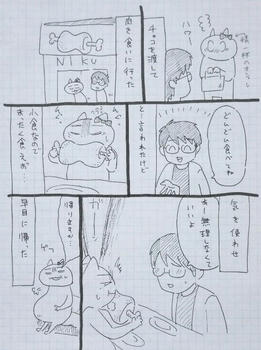 ハワー
チョコを渡して
肉を食いに行った
NIKU
どんどん食べてね
と言われたけど
小食なので
まったく食えず…
気を使わせ
あー無理しなくて
いいよ
帰りますか…
早目に帰った